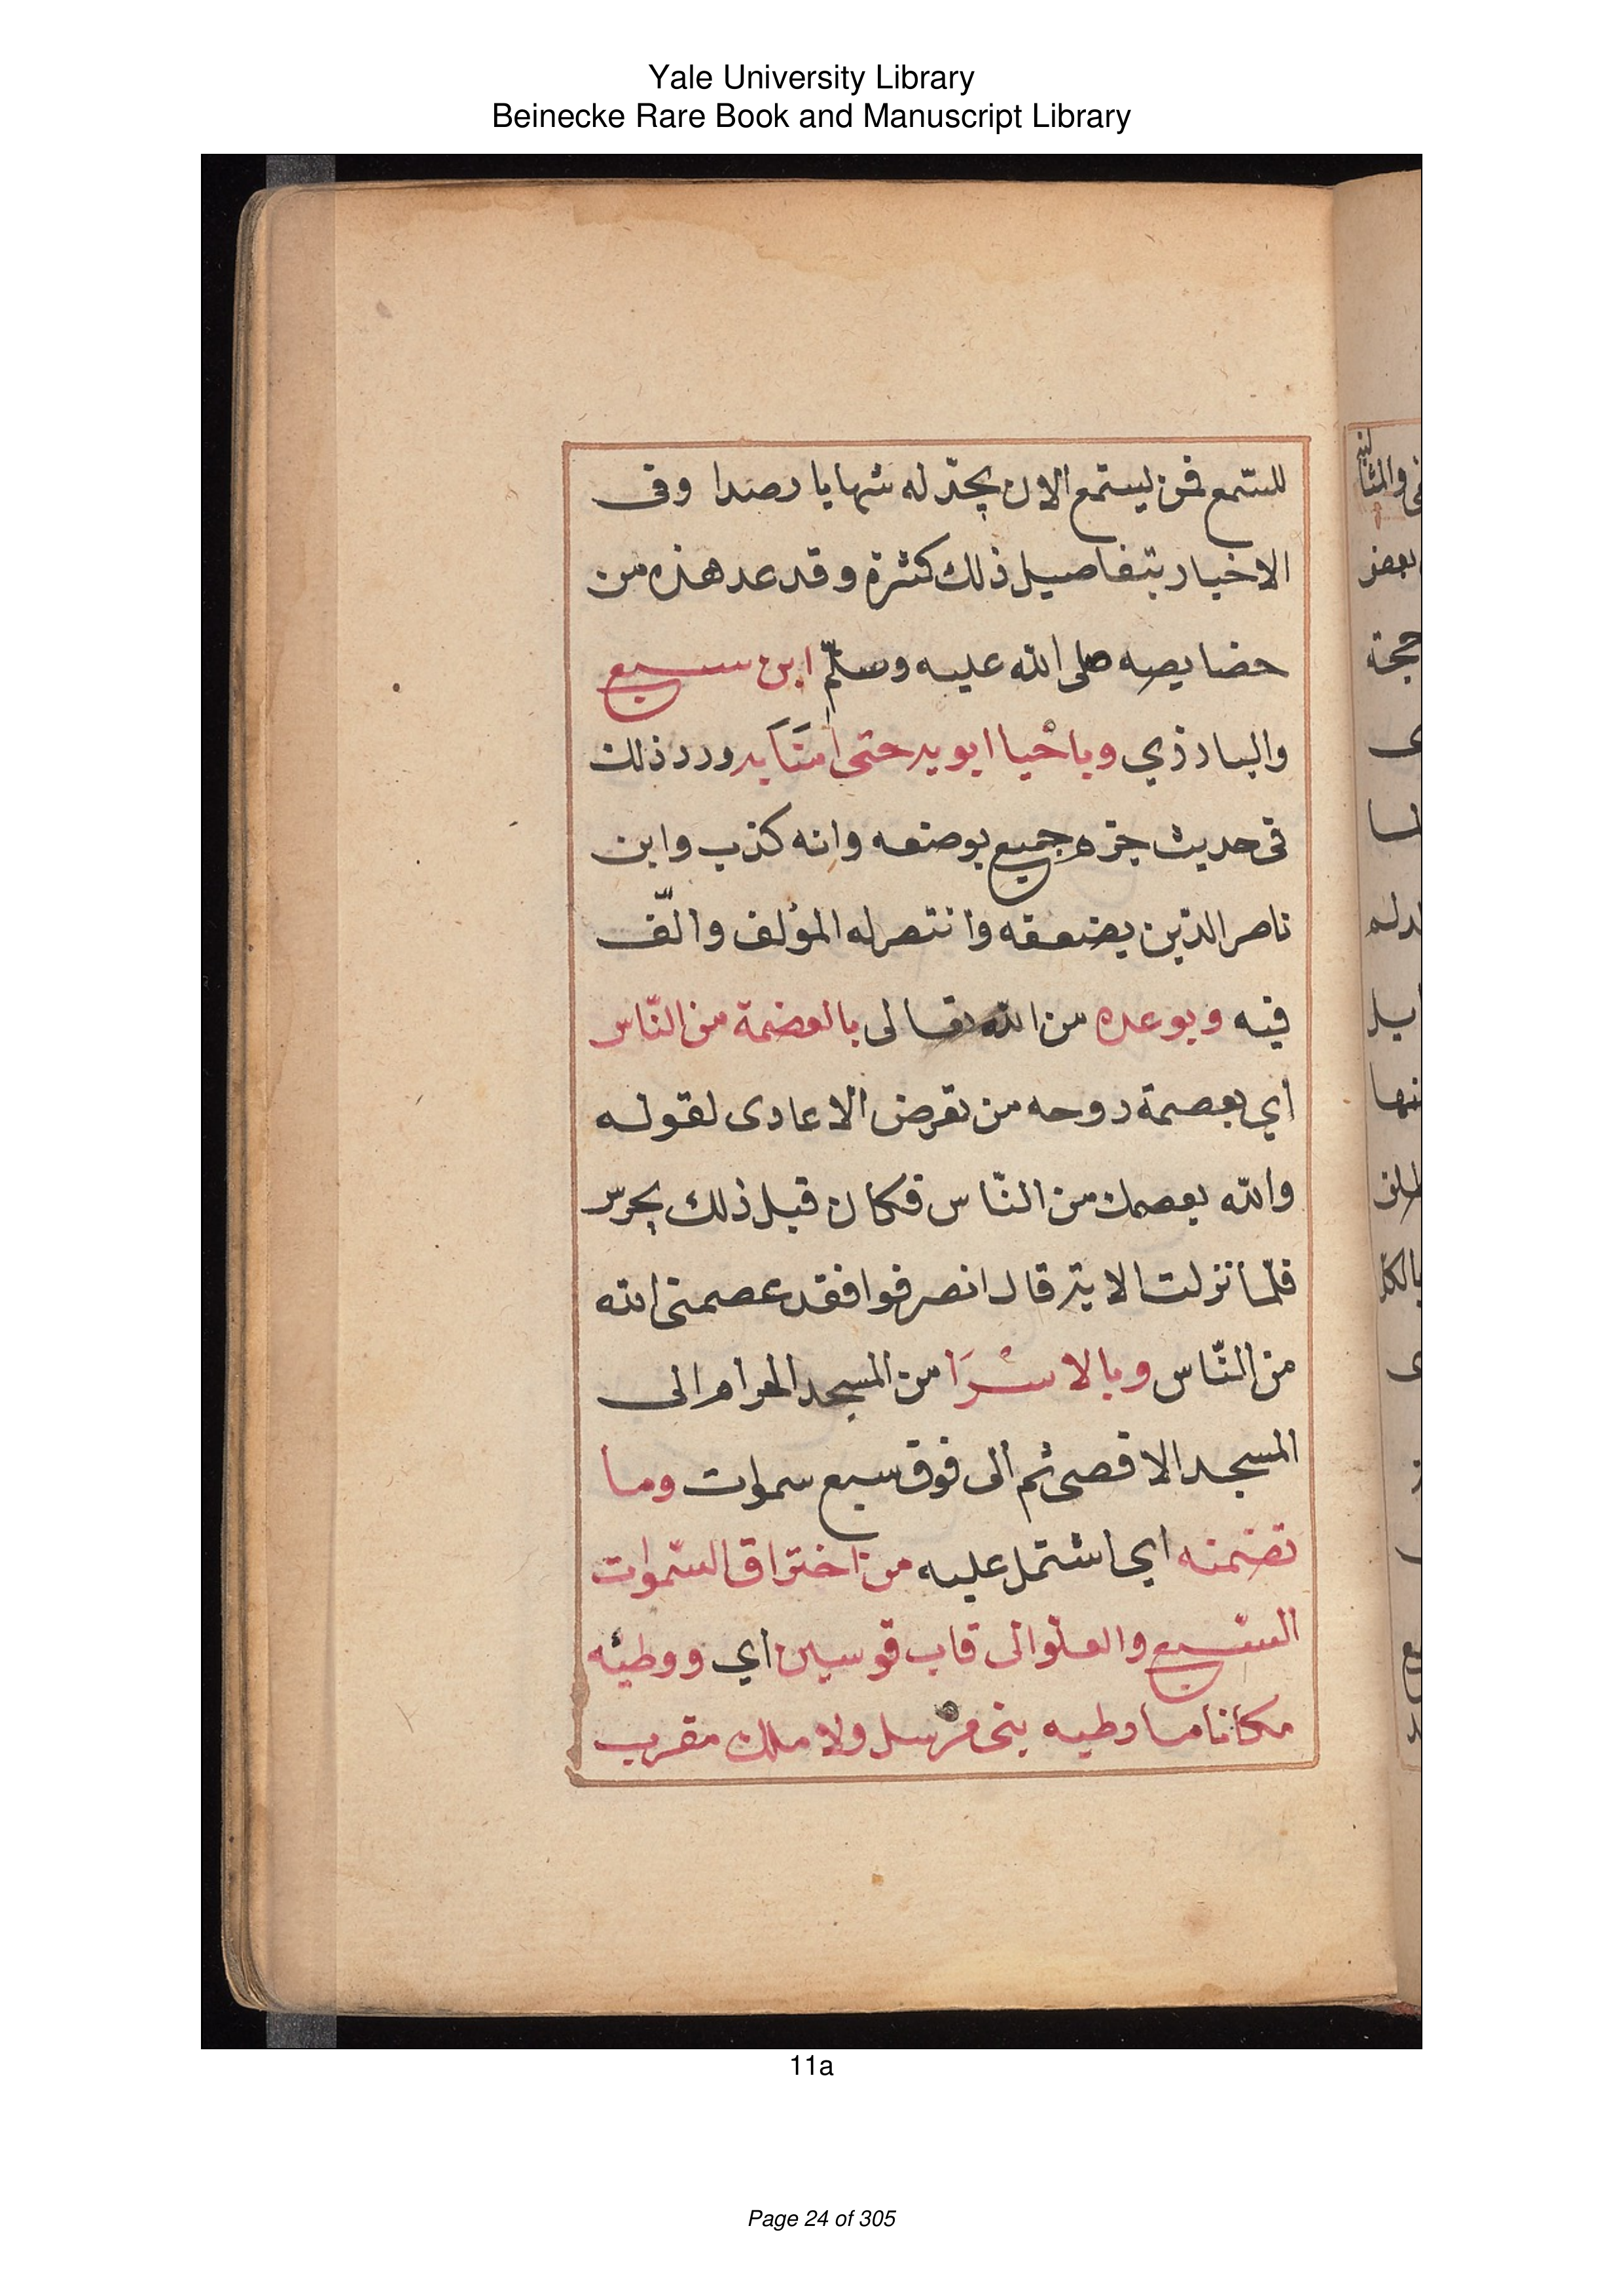 Yale University Library
Beinecke Rare Book and Manuscript Library
للسّمع فمن يستمع الان يجد له شهابا رصدا وفى
الاخبار بتفاصيل ذلك كثرة وقد عد هذه من
خصايصه صلى الله عليه وسلّم ابن سبع
والبارزي وباحيا ابويه حتى اَمَنَا به ورد ذلك
فى حديث جزم جميع بوضعه وانه كذب وابن
ناصر الدين يضعفه وانتصر له المؤلف والّف
فيه وبوعده من الله تعالى بالعصمة من النّاس
أي بعصمة روحه من تعرض الاعادى لقوله
والله يعصمك من النّاس فكان قبل ذلك يحرس
فلمّا نزلت الاية قال انصرفوا فقد عصمنى الله
من النّاس وبالاسْرَا من المسجد الحرام الى
المسجد الاقصى ثم الى فوق سبع سموات وما
تضمنه اي اشتمل عليه من اختراق السّموات
السّبع والعلو الى قاب قوسين أي ووطئه
مكانا ما وطيه نبى مرسل ولا ملك مقرب
11a
Page 24 of 305